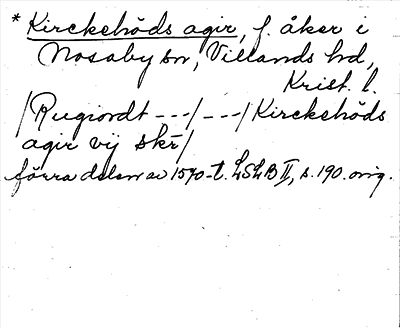 * Kirckehöds agir, f. åker i
Nosaby sn, Villands hd,
Krist. l.
/Rugiordt ---/ ---/ Kirckehöds
agir vij skr̄/
förra delen av 1570-t. LSLB II, s. 190. orig.